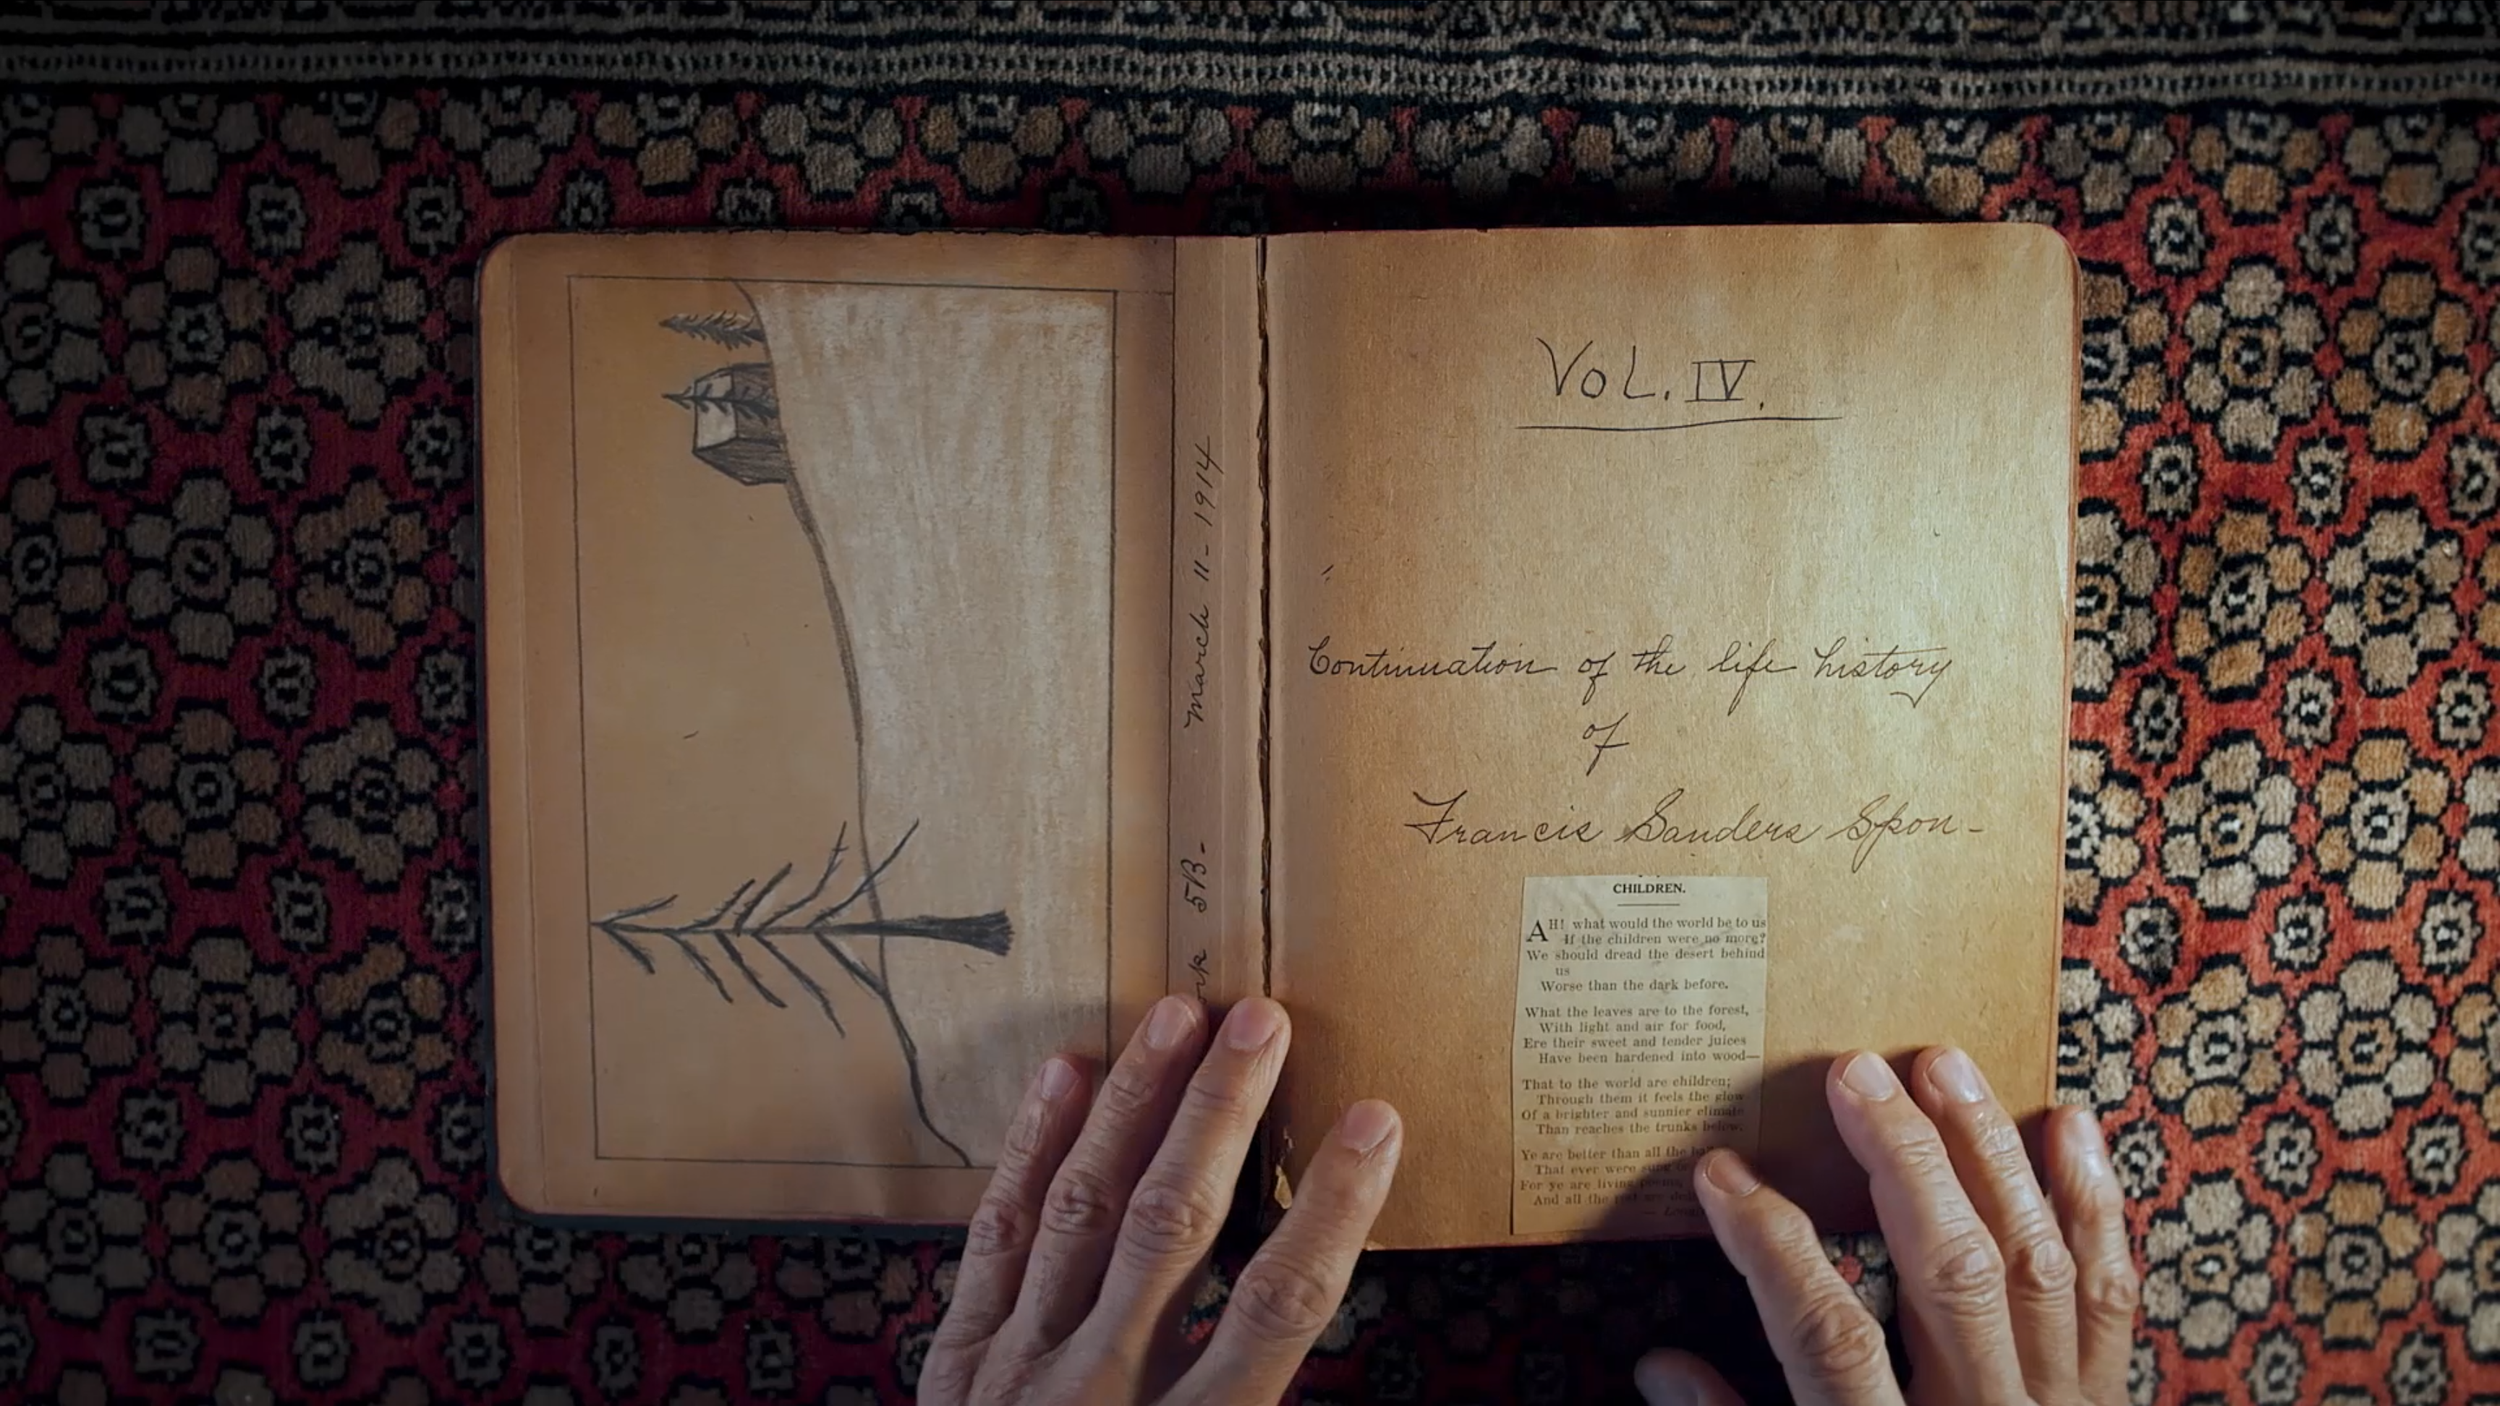 ork 5B- March 11-1914
VOL. IV.
Continuation of the life history
of
Francis Sanders Spon-
CHILDREN.
AH! what would the world be to us
If the children were no more?
We should dread the desert behind
us
Worse than the dark before.
What the leaves are to the forest,
With light and air for food,
Ere their sweet and tender juices
Have been hardened into wood—
That to the world are children;
Through them it feels the glow
Of a brighter and sunnier climate
Than reaches the trunks below.
Ye are better than all the
That ever were sung
For ye are living poems,
And all the rest are